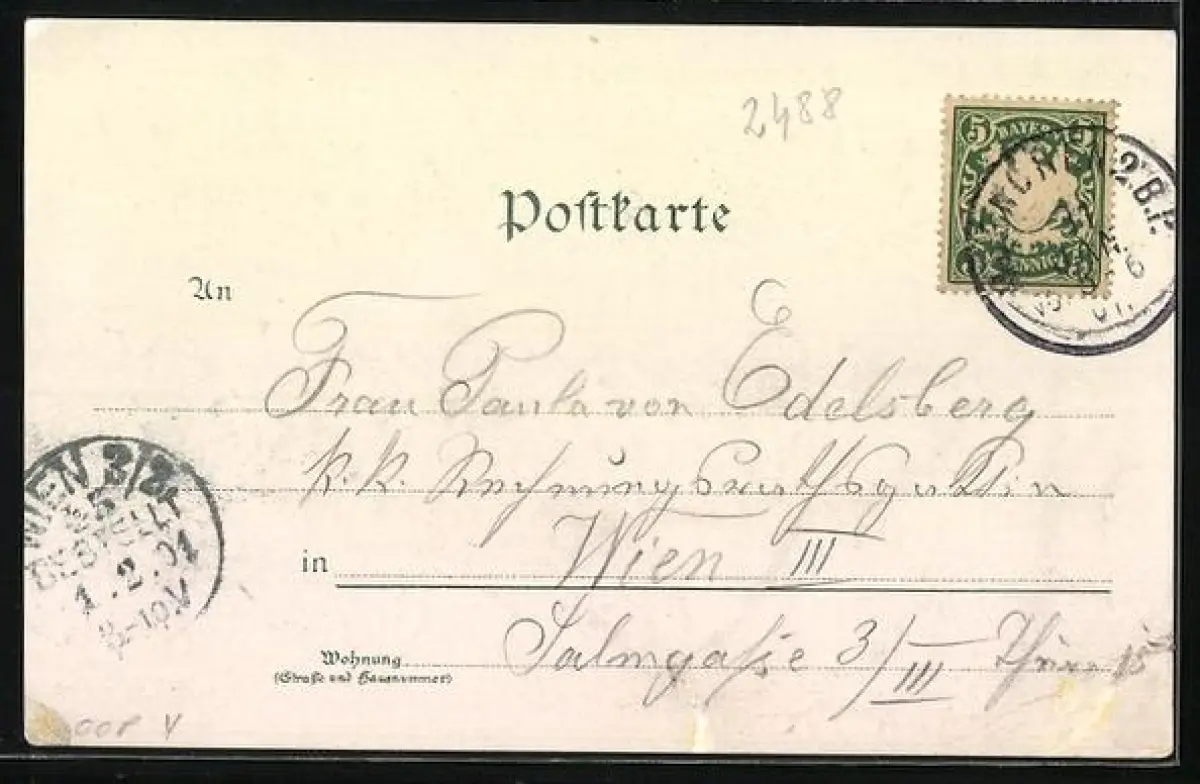 2488
5 BAYERN 5
PFENNIG
MÜNCHEN 2.B.P.
01.
Postkarte
An
Frau Paula von Edelsberg
k. k. Rechnungsrathsgattin
in Wien III
Salmgaße 3/III
Wohnung
(Straße und Hausnummer)
WIEN 3/2
BESTELLT
1.2.01
8-10V